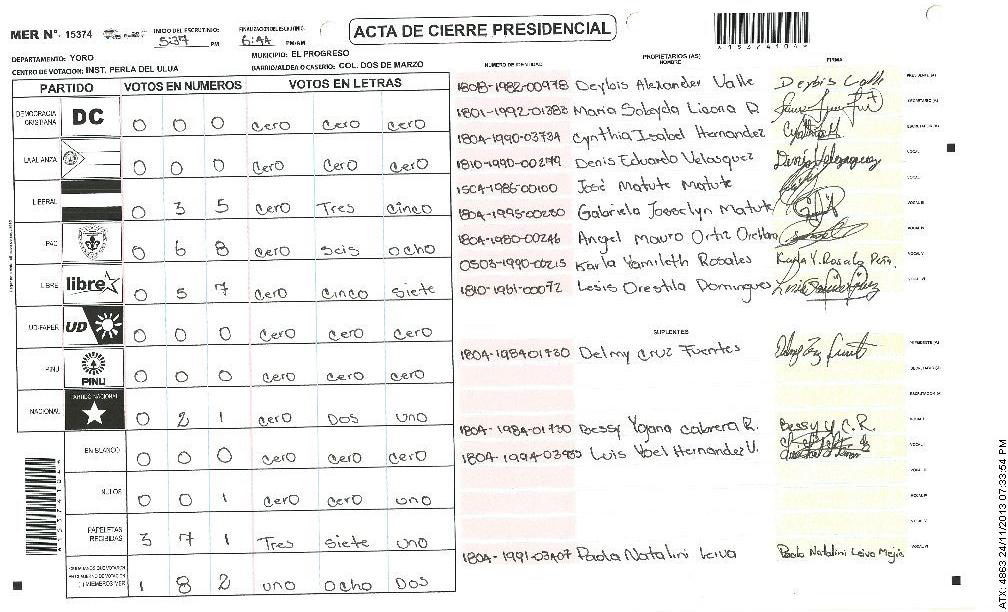 MER Nº. 15374
INICIO DEL ESCRUTINIO:
5:37 PM
6:44 PM/AM
ACTA DE CIERRE PRESIDENCIAL
DEPARTAMENTO: YORO
MUNICIPIO: EL PROGRESO
CENTRO DE VOTACION: INST. PERLA DEL ULUA
BARRIO/ALDEA O CASERIO: COL. DOS DE MARZO
NUMERO DE IDENTIDAD
PROPIETARIOS (AS)
NOMBRE
FIRMA
PARTIDO VOTOS EN NUMEROS VOTOS EN LETRAS
DEMOCRACIA CRISTIANA DC 0 0 0 cero cero cero
0 0 0 cero cero cero
LIBERAL 0 3 5 cero Tres cinco
PAC 0 6 8 cero seis ocho
LIBRE libre 0 5 7 cero cinco siete
UD-FAPER UD 0 0 0 cero cero cero
PINU PINU 0 0 0 cero cero cero
NACIONAL 0 2 1 cero Dos uno
EN BLANCO 0 0 0 cero cero cero
NULOS 0 0 1 cero cero uno
PAPELETAS RECIBIDAS 3 7 1 Tres siete uno
1 8 2 uno ocho Dos
1808-1982-00978 Deybis Alexander Valle Deybis Valle
1801-1992-01383 Maria Sobeyda Licona R.
1804-1990-03734 Cynthia Isabel Hernandez
1810-1990-00279 Denis Eduardo Velasquez
1504-1986-00100 José Matute Matute
1804-1995-00280 Gabriela Josselyn Matute
1804-1980-00246 Angel Mauro Ortiz
0503-1990-00215 Karla Yamileth Rosales Karla Y. Rosales
1810-1961-00072 Lesis Orestila Domingues
SUPLENTES
1804-1984-01730 Delmy Cruz Fuentes
1804-1984-01730 Bessy Yojana Cabrera R. Bessy Y. C. R.
Luis Yoel Hernandez V.
1804-1991-03407 Paola Natalini Leiva Paola Natalini Leiva Mejia
ATX: 4863 24/11/2013 07:33:54 PM